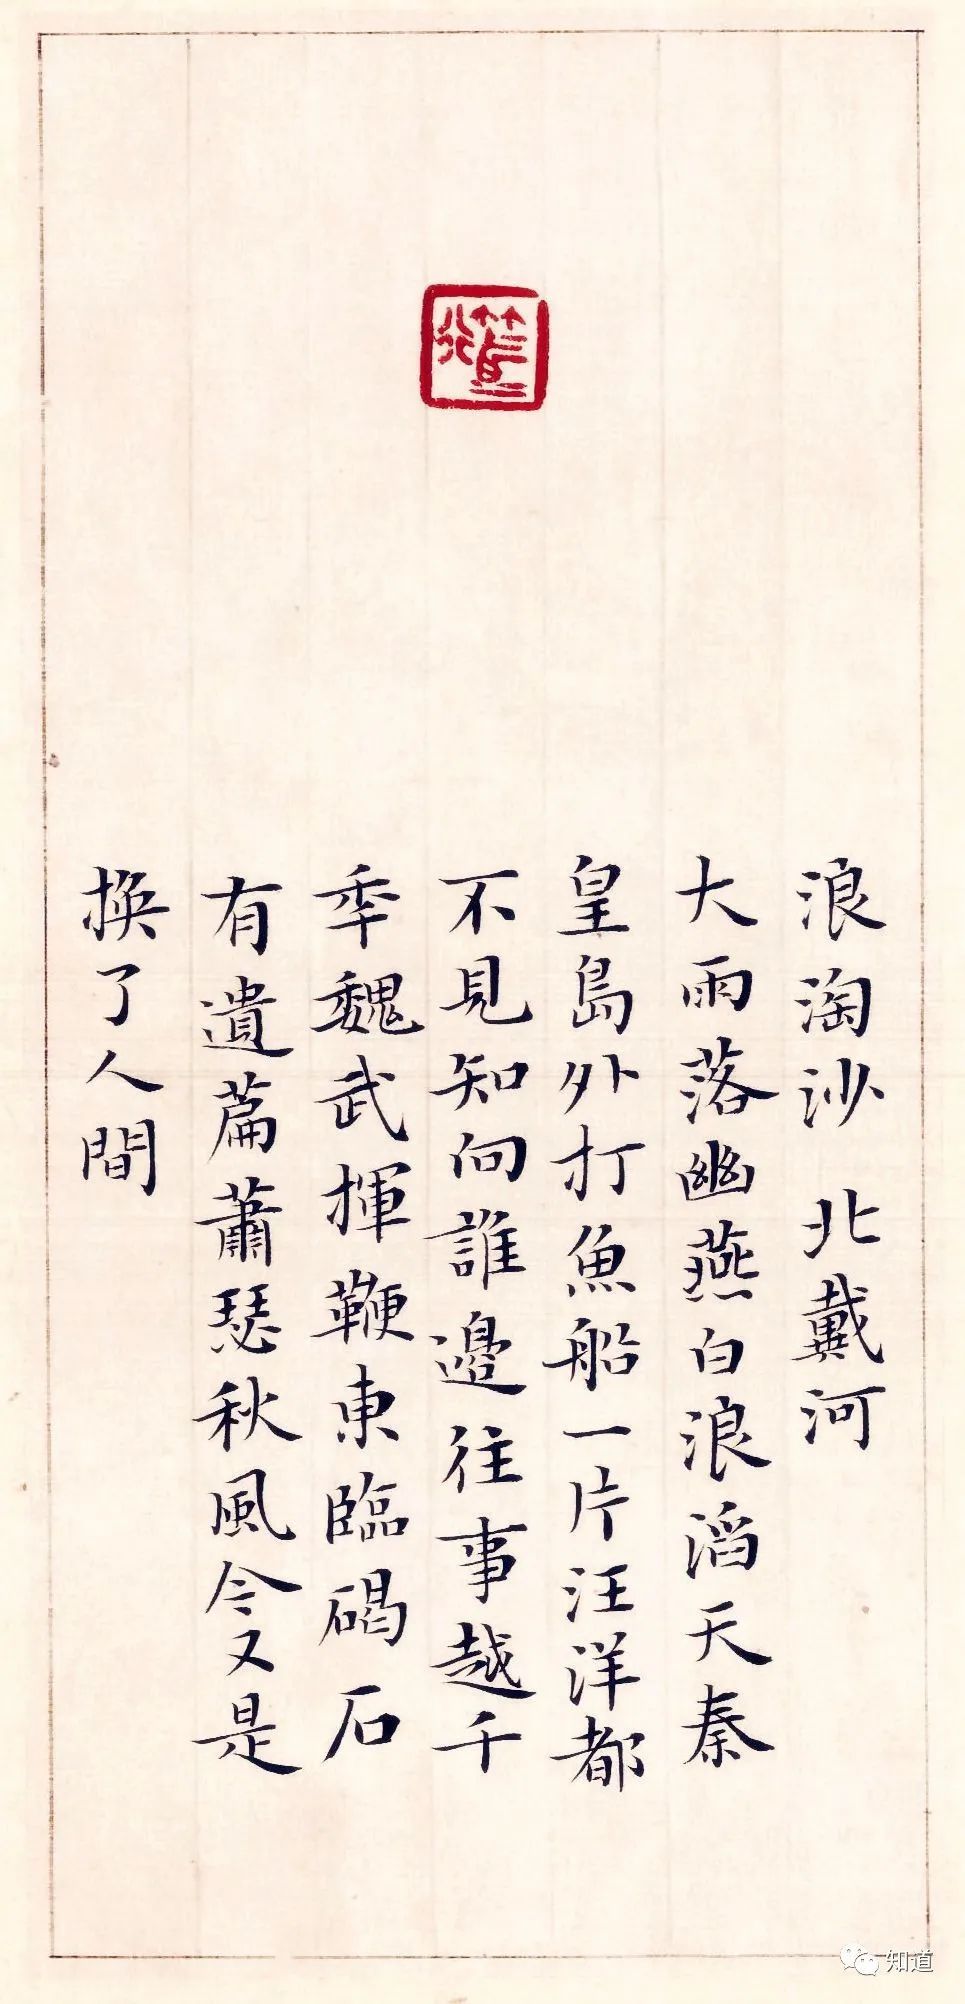 浪淘沙 北戴河
大雨落幽燕白浪滔天秦
皇島外打魚船一片汪洋都
不見知向誰邊往事越千
年魏武揮鞭東臨碣石
有遺篇蕭瑟秋風今又是
換了人間
知道